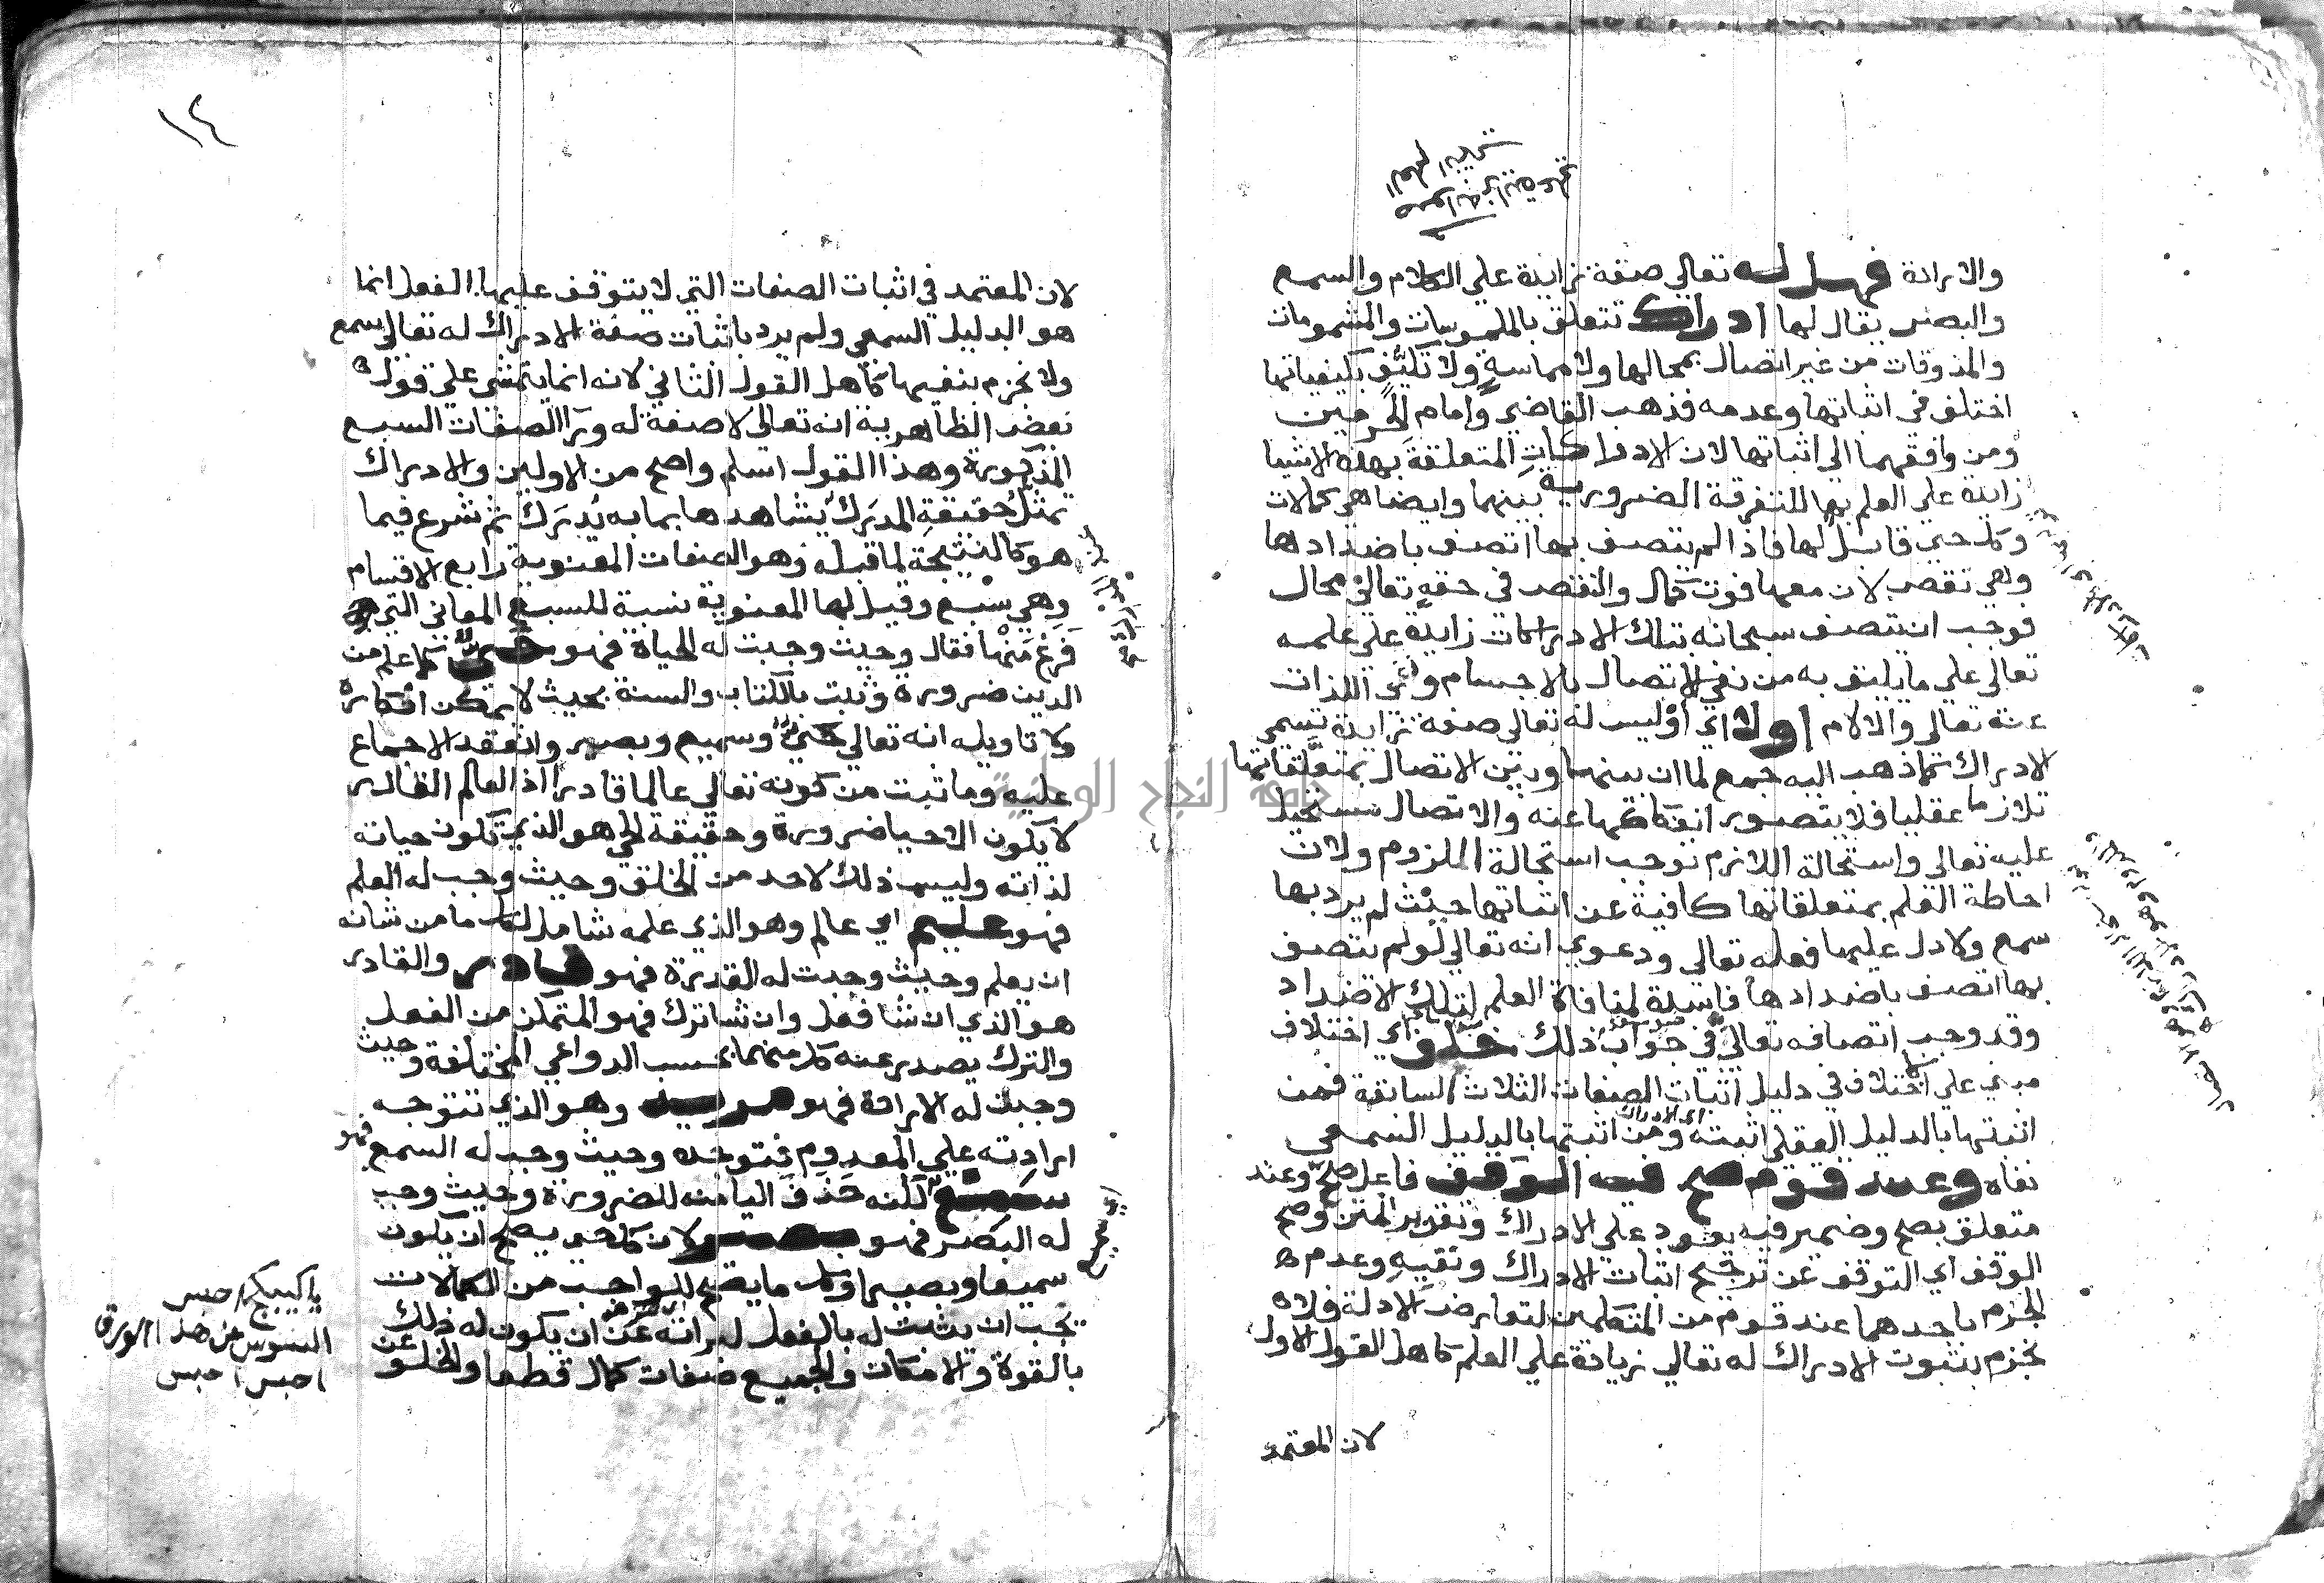 والارادة فهل له تعالى صفة زايدة على الكلام والسمع
والبصر يقال لها ادراك تتعلق بالملموسات والمشمومات
والمذوقات من غير اتصال بمحالها ولا مماسة ولا تكيف بكيفياتها
اختلف في اثباتها وعدمه فذهب القاضي وإمام الحرمين
ومن وافقهما الى اثباتها لان الادراكات المتعلقة بهذه الاشيا
زايدة على العلم بها للتفرقة الضرورية بينهما وايضا هي كمالات
وكل حي قابل لها فاذا لم يتصف بها اتصف باضدادها
وهي نقص لان معها فوت كمال والنقص في حقه تعالى محال
فوجب ان يتصف سبحانه بتلك الادراكات زايدة على علمه
تعالى على ما يليق به من نفي الاتصال بالاجسام ونفي اللذات
عنه تعالى والالام أولا اي أوليس له تعالى صفة زايدة تسمى
الادراك كما ذهب اليه جمع لما ان بينها وبين الاتصال بمتعلقاتها
تلازما عقليا فلا يتصور انفكاكها عنه والاتصال مستحيل
عليه تعالى واستحالة اللازم توجب استحالة الملزوم ولان
احاطة العلم بمتعلقاتها كافية عن اثباتها حيث لم يرد بها
سمع ولا دل عليها فعله تعالى ودعوى انه تعالى لو لم يتصف
بها اتصف باضدادها فاسدة لمنافاة العلم لتلك الاضداد
وقد وجب اتصافه تعالى في جواب ذلك خلف اي اختلاف
مبني على اختلاف في دليل اثبات الصفات الثلاث السابقة فمن
اثبتها بالدليل العقلي اثبته ومن اثبتها بالدليل السمعي
اي الادراك
نفاه وعند قوم صح فيه الوقف فاعل صح وعند
متعلق بصح وضمير فيه يعود على الادراك وتقدير المتن وصح
الوقف اي التوقف عن ترجيح اثبات الادراك ونفيه وعدم
الجزم باحدهما عند قوم من المتكلمين لتعارض الادلة فلا
نجزم بثبوت الادراك له تعالى زيادة على العلم كاهل القول الاول
لان المعتمد
١٤
لان المعتمد في اثبات الصفات التي لا يتوقف عليها الفعل انما
هو الدليل السمعي ولم يرد باثبات صفة الادراك له تعالى سمع
ولا نجزم بنفيها كاهل القول الثاني لانه انما يتمشى على قول
بعض الظاهرية انه تعالى لا صفة له ورا الصفات السبع
المذكورة وهذا القول اسلم واصح من الاولين والادراك
تمثل حقيقة المدرك يشاهدها بما به يدرك ثم شرع فيما
هو كالنتيجة لما قبله وهو الصفات المعنوية رابع الاقسام
وهي سبع وقيل لها المعنوية نسبة للسبع المعاني التي
فرغ منها فقال وحيث وجبت له الحياة فهو حي كما علم من
الدين ضرورة وثبت بالكتاب والسنة بحيث لا يمكن انكاره
ولا تاويله انه تعالى حي وسميع وبصير وانعقد الاجماع
عليه وما ثبت من كونه تعالى عالما قادرا اذ العالم القادر
لا يكون الا حيا ضرورة وحقيقة الحي هو الذي تكون حياته
لذاته وليس ذلك لاحد من الخلق وحيث وجب له العلم
فهو عليم اي عالم وهو الذي علمه شامل لكل ما من شانه
ان يعلم وحيث وجبت له القدرة فهو قادر والقادر
هو الذي ان شا فعل وان شا ترك فهو المتمكن من الفعل
والترك يصدر عنه كل منهما بحسب الدواعي المختلفة وحيث
وجبت له الارادة فهو مريد وهو الذي تتوجه
ارادته على المعدوم فتوجده وحيث وجب له السمع فهو
سمع لكنه حذف اليا منه للضرورة وحيث وجب
له البصر فهو بصير لان كل حي يصح ان يكون
سميعا وبصيرا وكل ما يصح للواجب من الكمالات
يجب ان يثبت له بالفعل لبراته عن ان يكون له ذلك
بالقوة والامكان والجميع صفات كمال قطعا والخلو عن
اي سميع
يا كبيكج احبس
السوس عن هذا الورق
احبس احبس
جامعة النجاح الوطنية